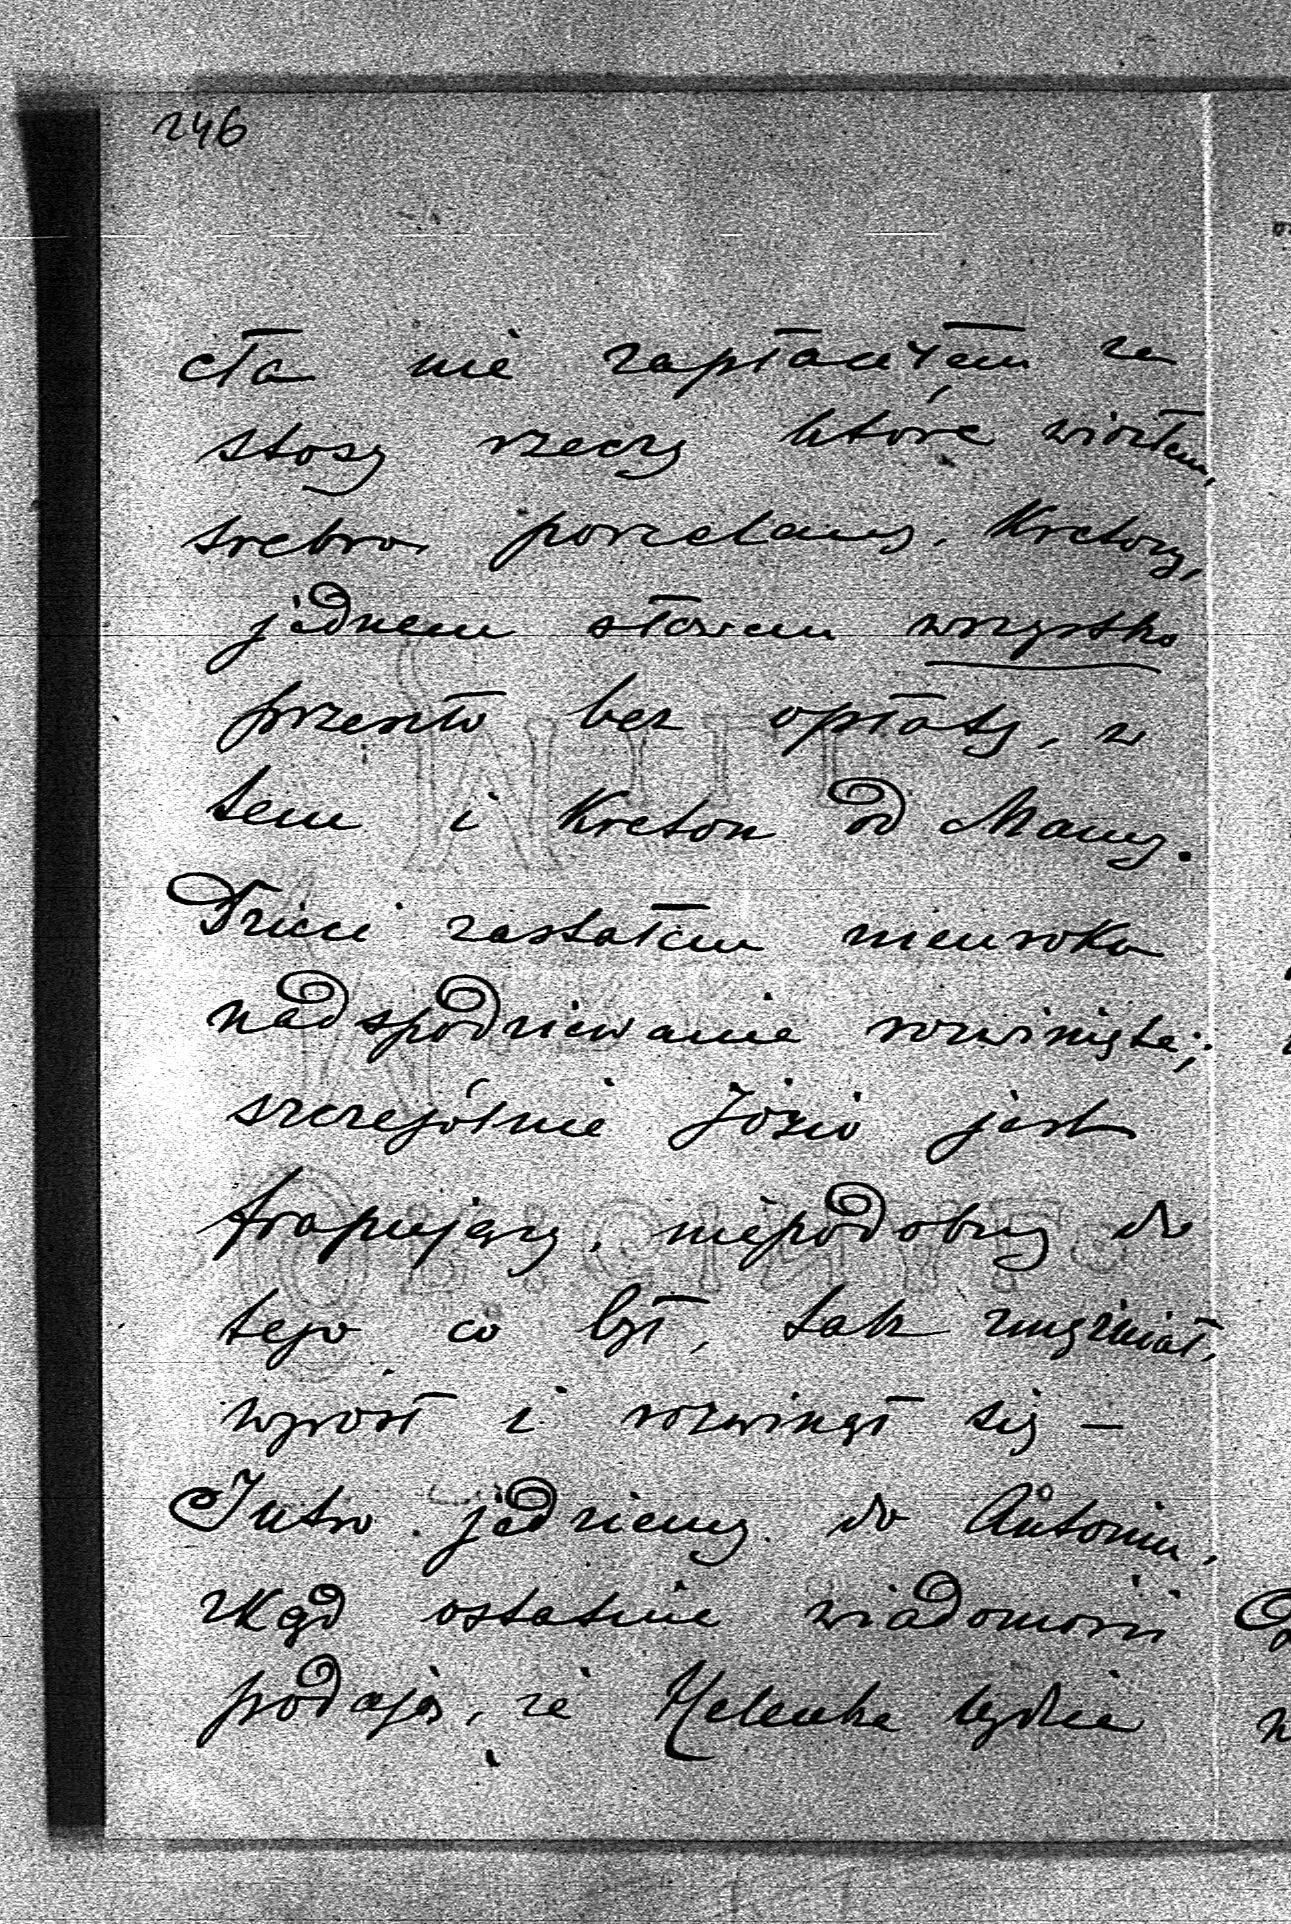 246
cła nie zapłaciłem za
stosy rzeczy które wiozłem,
srebro, porcelany, Kretony,
jednem słowem wszystko
przeszło bez opłaty, w
tem i Kreton od Mamy.
Dzieci zastałem nieuroku
nadspodziewanie rozwinięte;
szczególnie Józio jest
frapujący, niepodobny do
tego co był, tak zmężniał,
wyrósł i rozwinął się —
Jutro jedziemy do Antonin,
zkąd ostatnie wiadomości
podają, że Helenka będzie